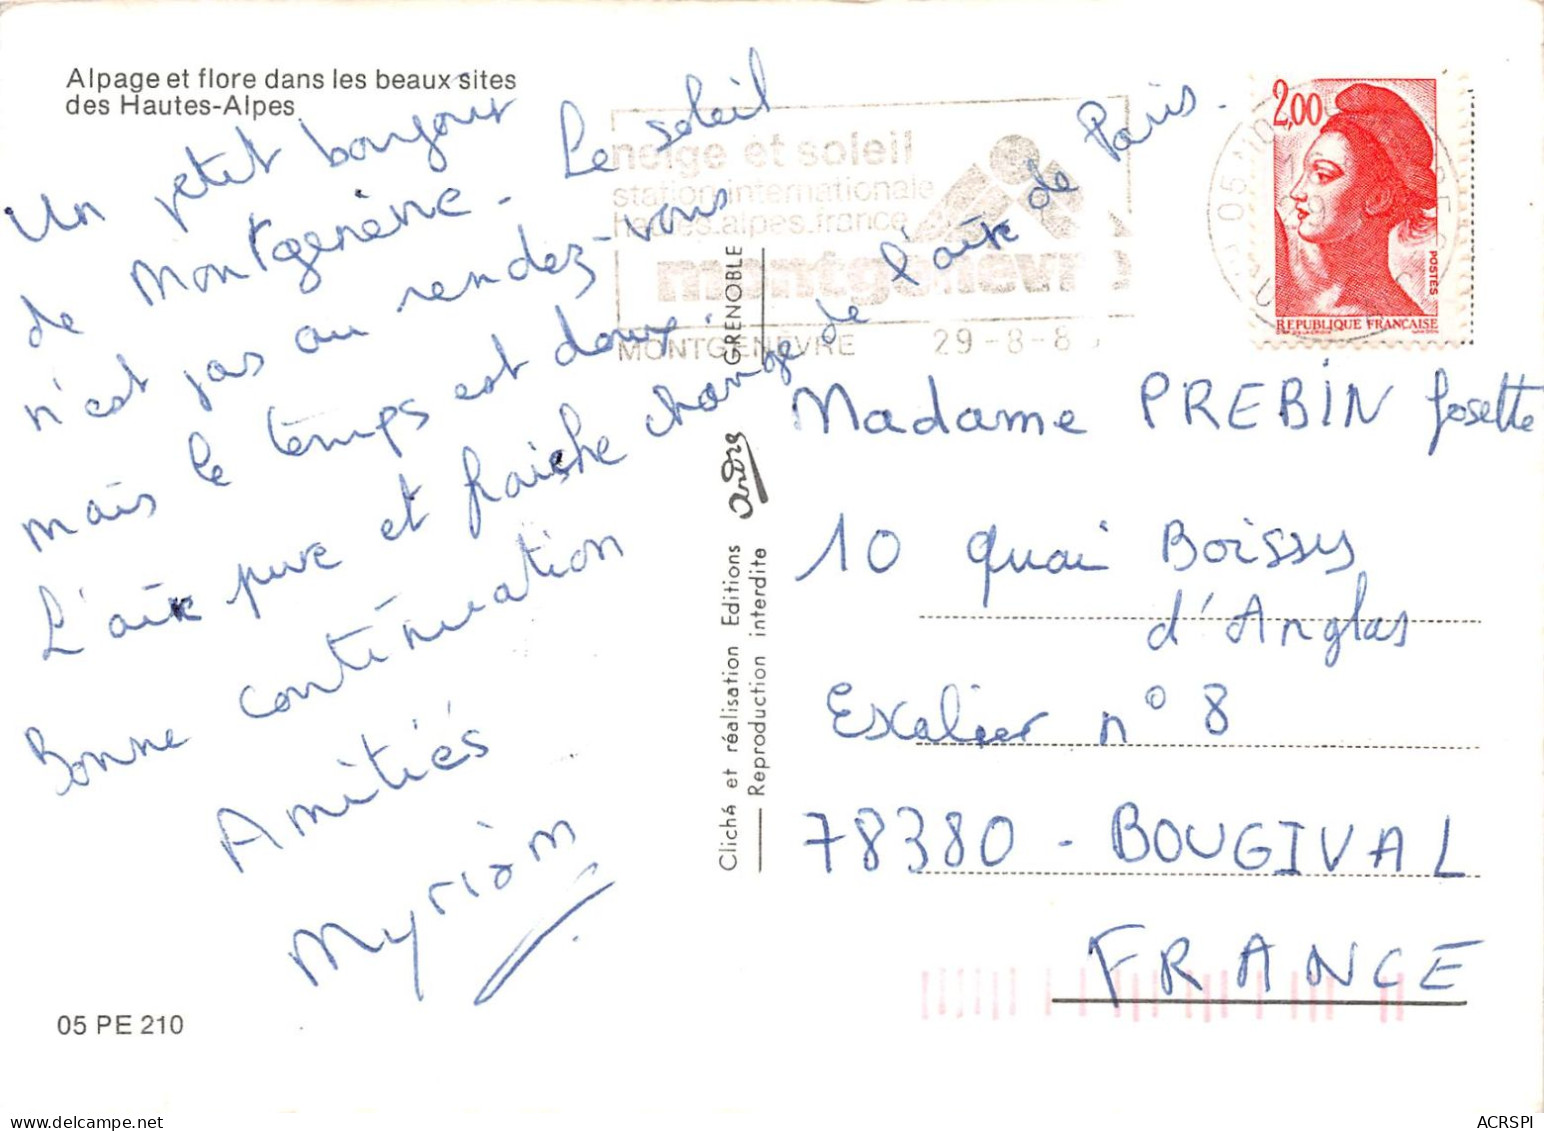 Alpage et flore dans les beaux sites
des Hautes-Alpes
Un petit bonjour
de Montgenèvre. Le soleil
n'est pas au rendez-vous
mais le temps est doux.
L'air pure et fraiche change de l'air de Paris.
Bonne continuation
Amitiés
Myriam
05 PE 210
neige et soleil
station internationale
hautes.alpes.france
montgenèvr
MONTGENEVRE 29-8-8
Cliché et réalisation Editions andré GRENOBLE
Reproduction interdite
2,00
POSTES
REPUBLIQUE FRANCAISE
Madame PREBIN Josette
10 quai Boissy
d'Anglas
Escalier n° 8
78380 - BOUGIVAL
FRANCE
ACRSPI